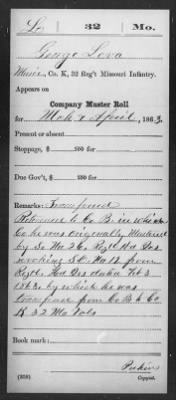 L | 32 | Mo.
George Lova
Music, Co. K, 32 Reg't Missouri Infantry.
Appears on
Company Master Roll
for Mch & April, 1863.
Present or absent
Stoppage, $ 100 for
Due Gov't, $ 100 for
Remarks: Transferred
Returned to Co B in which
Co he was originally Mustered
by So No 26 Regt Hd Qrs
revoking S.O. No 12 from
Regt Hd Qrs date Feb 3
1863. by which he was
transferred from Co B to Co
K 32 Mo Vols
Book mark:
(858)
Copyist.